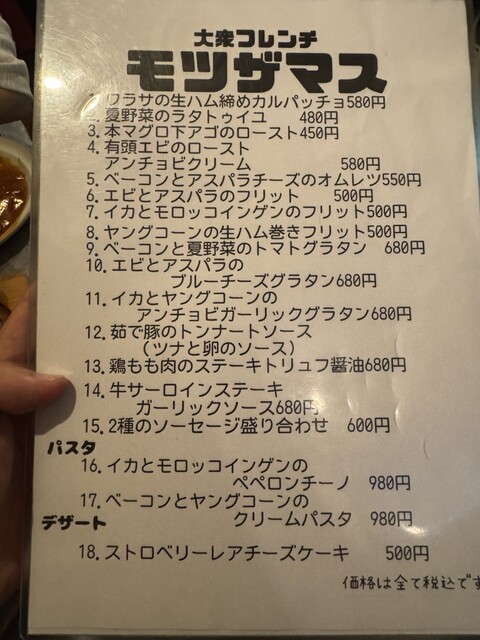 大衆フレンチ
モツザマス
1. ワラサの生ハム締めカルパッチョ580円
2. 夏野菜のラタトゥイユ 480円
3. 本マグロ下アゴのロースト450円
4. 有頭エビのロースト
アンチョビクリーム 580円
5. ベーコンとアスパラチーズのオムレツ550円
6. エビとアスパラのフリット 500円
7. イカとモロッコインゲンのフリット500円
8. ヤングコーンの生ハム巻きフリット500円
9. ベーコンと夏野菜のトマトグラタン 680円
10. エビとアスパラの
ブルーチーズグラタン680円
11. イカとヤングコーンの
アンチョビガーリックグラタン680円
12. 茹で豚のトンナートソース
(ツナと卵のソース)
13. 鶏もも肉のステーキトリュフ醤油680円
14. 牛サーロインステーキ
ガーリックソース680円
15. 2種のソーセージ盛り合わせ 600円
パスタ
16. イカとモロッコインゲンの
ペペロンチーノ 980円
17. ベーコンとヤングコーンの
クリームパスタ 980円
デザート
18. ストロベリーレアチーズケーキ 500円
価格は全て税込です